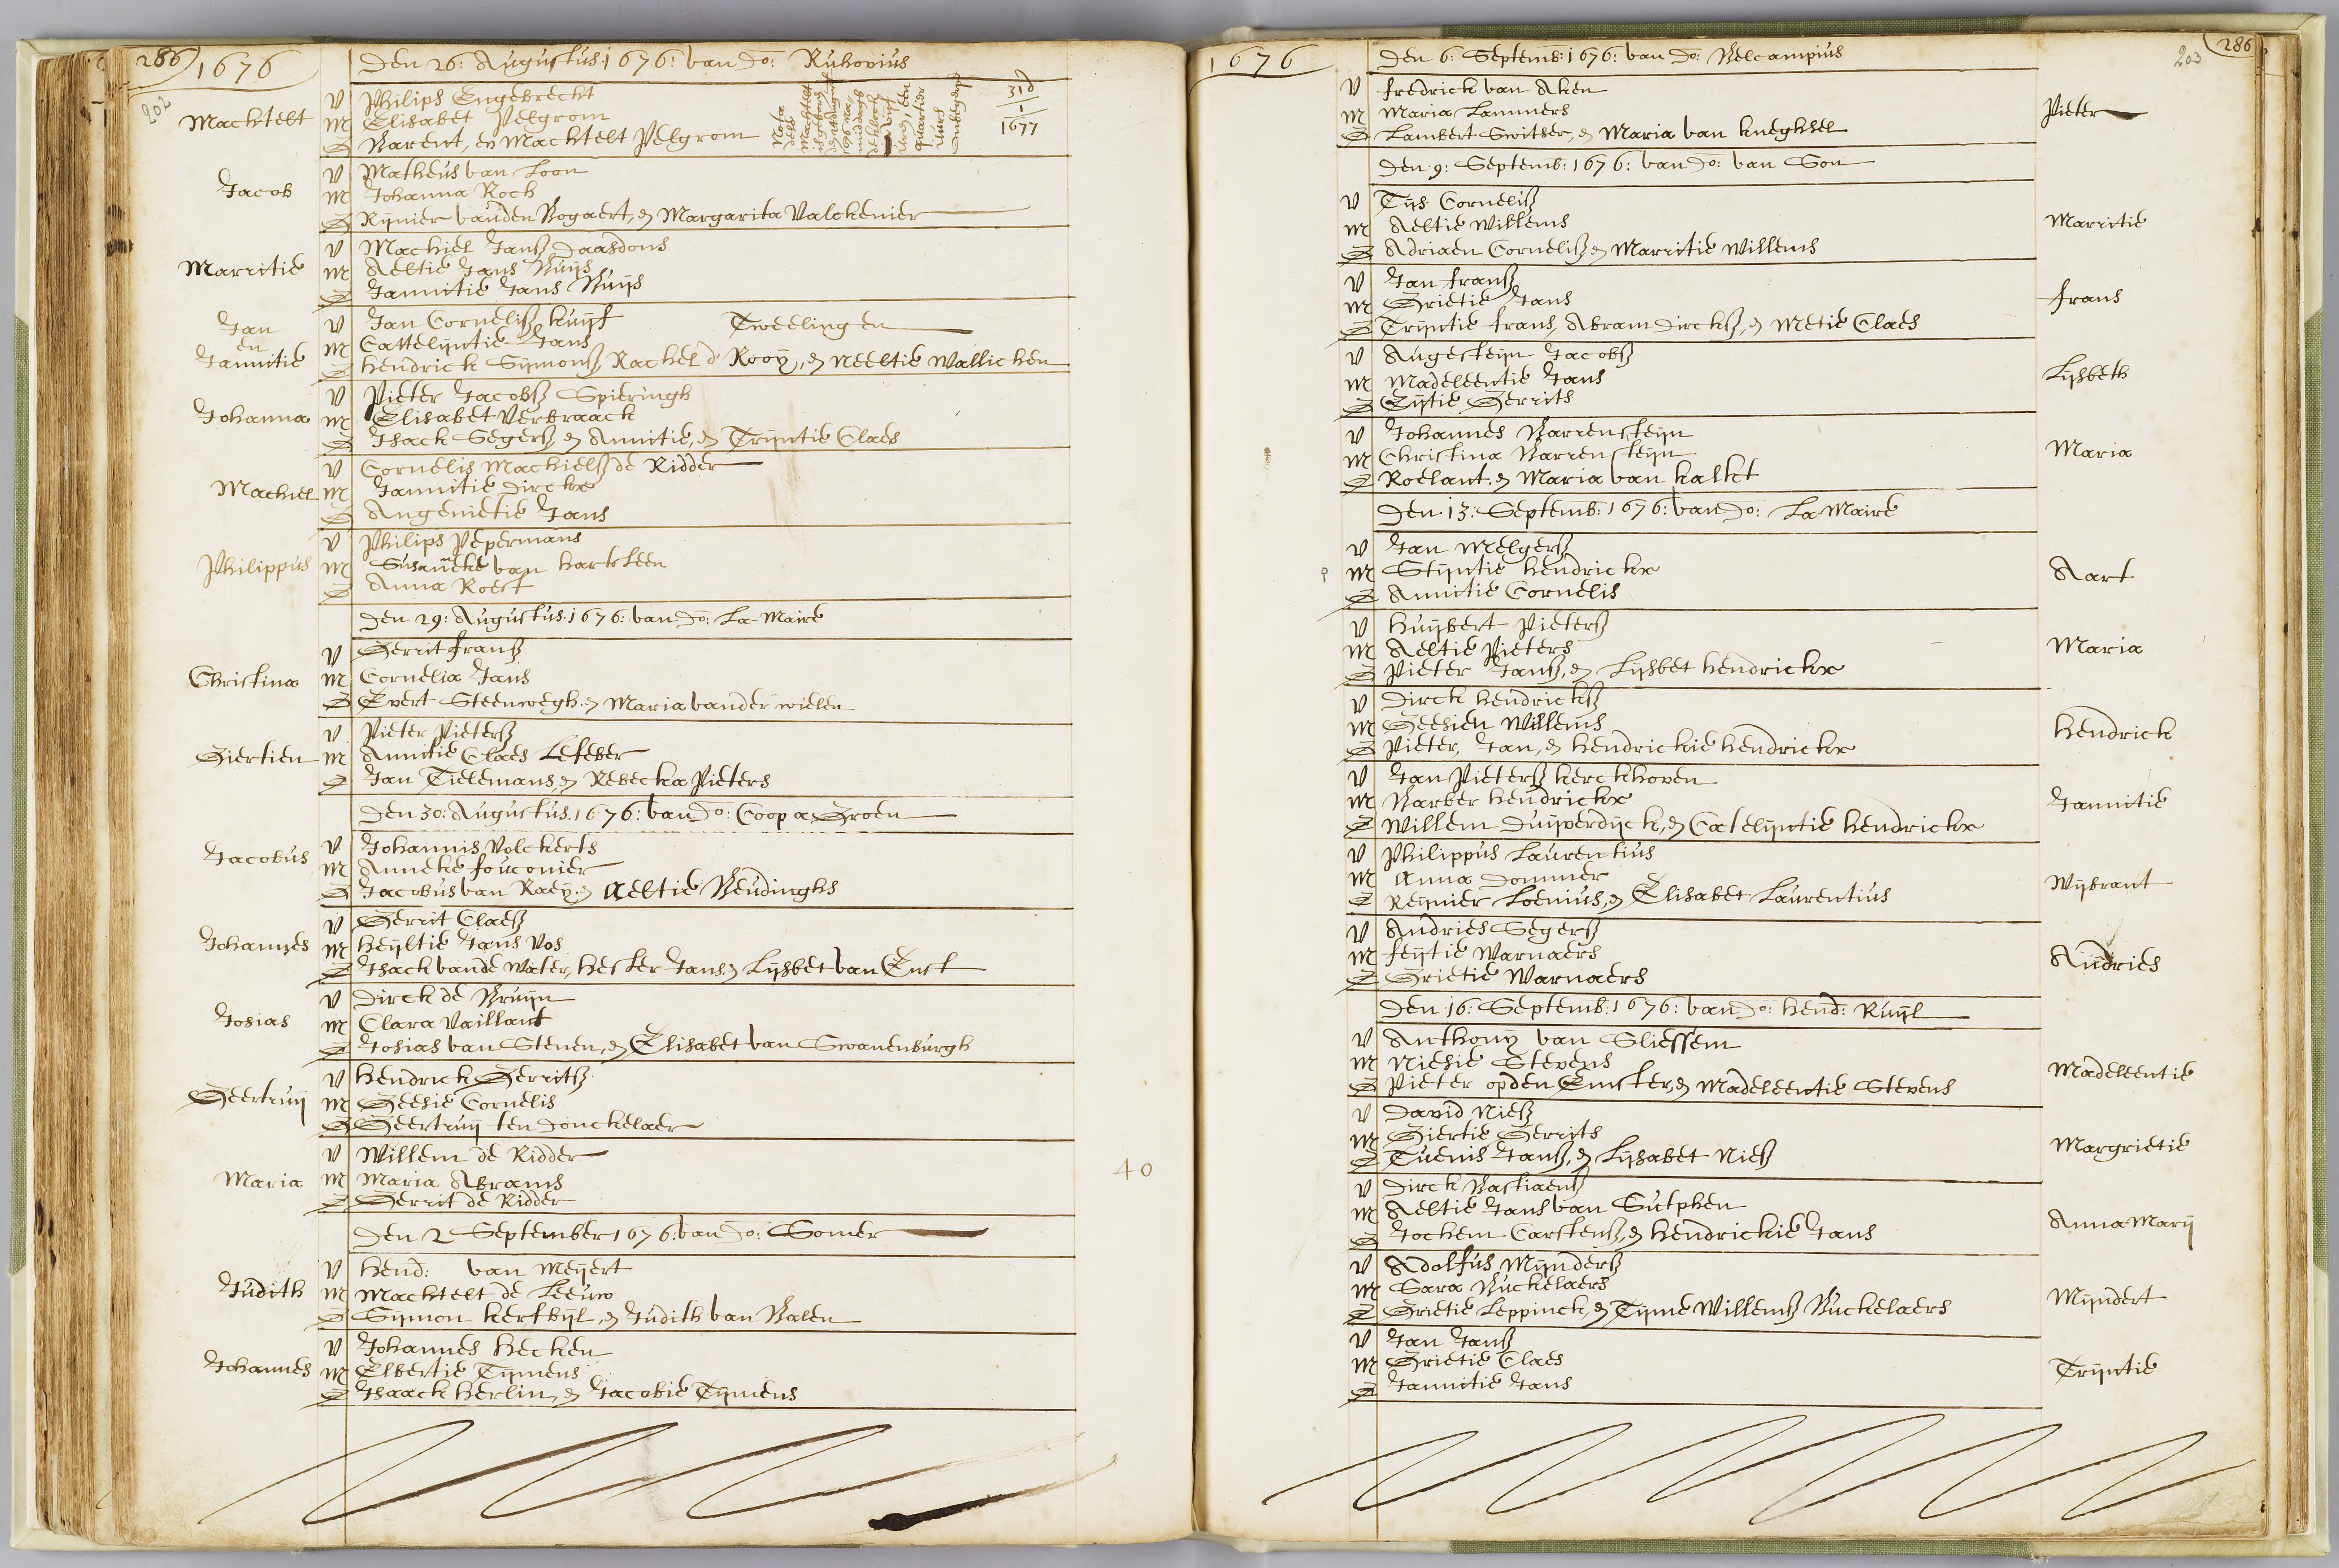 286
1676
202
Den 26: Augustus: 1676: van do: Ruhovius
Machtelt
V Philips Engebrecht
M Elisabet Pelgrom
G Barent, en Machtelt Pelgrom
Nota
dese
Machtelt
is geboren
1676
de klock
een
quartier
uurs
31d
1
1677
Jacob
V Matheus van Loon
M Johanna Roch
G Rijnier vanden Bogaert, en Margarita Valckenier
Marritie
V Machiel Jansz Daasdons
M Aeltie Jans Buijs
G Jannitie Jans Buijs
Jan
en
Jannitie
V Jan Cornelisz kuijf Tweelingen
M Cattelijntie Jans
G Hendrick Sijmonsz, Rachel d' Rooy, en Neeltie Wallichen
Johanna
V Pieter Jacobsz Spieringh
M Elisabet Verbraack
G Isack Segersz en Annitie, en Trijntie Claes
Machiel
V Cornelis Machielsz de Ridder
M Jannitie Dirckx
G Angenietie Jans
Philippus
V Philips Pepermans
M Susanneke van Harteleen
G Anna Roest
Den 29: Augustus: 1676: van do: La Maire
Christina
V Gerrit fransz
M Cornelia Jans
G Evert Steenwegh en Maria vander wielen
Giertien
V Pieter Pietersz
M Annitie Claes Lefeber
G Jan Tielemans, en Rebecka Pieters
Den 30: Augustus: 1676: van do: Coop a Groen
Jacobus
V Johannis Volckerts
M Anneke fouconier
G Jacobus van Raeij en Aeltie Bendinghs
Johannes
V Gerrit Claesz
M Heijltie Jans Vos
G Isack vande Water, Hester Jans en Lijsbet van Enst
Josias
V Dirck de Bruijn
M Clara Vaillant
G Josias van Steven, en Elisabet van Swanenburgh
Geertruij
V Hendrick Gerritsz
M Geesie Cornelis
G Geertruij ten Donckelaer
Maria
V Willem de Ridder
M Maria Abrams
G Gerrit de Ridder
Den 2 September 1676: van do: Somer
Judith
V Hend: van Meijert
M Machtelt de Leeuw
G Sijmon kerfbijl, en Judith van Balen
Johannes
V Johannes Hecken
M Elbertie Tijmens
G Isaack Herlin, en Jacobie Tijmens
40
1676
286
203
Den 6: Septemb: 1676: van do: Belcampius
V fredrick van Aken
M Maria Lammers
G Lambert Switser, en Maria van kneghsel
Pieter
Den 9: Septemb: 1676: van do: van Son
V Tijs Cornelisz
M Aeltie Willems
G Adriaen Cornelisz en Marritie Willems
Marritie
V Jan fransz
M Grietie Jans
G Trijntie frans, Abram Dircksz, en Metie Claes
frans
V Augesteijn Jacobsz
M Madeleentie Jans
G Eijtie Gerrits
Lijsbeth
V Johannes Barrensteijn
M Christina Barrensteijn
G Roelant en Maria van kalkt
Maria
Den 13: Septemb: 1676: van do: La Maire
V Jan Melgersz
M Stijntie Hendrickx
G Annitie Cornelis
Aart
V Huijbert Pietersz
M Aeltie Pieters
G Pieter Jansz, en Lijsbet Hendrickx
Maria
V Dirck Hendricksz
M Geesien Willems
G Pieter, Jan, en Hendrickie Hendrickx
Hendrick
V Jan Pietersz kerckhoven
M Barber Hendrickx
G Willem Duijverdijck, en Catelijntie Hendrickx
Jannitie
V Philippus Laurentius
M Anna Dommer
G Reijnier Loenius, en Elisabet Laurentius
Wijbrant
V Andries Segersz
M feijtie Warnaers
G Grietie Warnaers
Andries
Den 16: Septemb: 1676: van do: Hend: Ruijl
V Anthonij van Gliessem
M Niesie Stevens
G Pieter opden Emster, en Madeleentie Stevens
Madeleentie
V David Niesz
M Giertie Gerrits
G Tuenis Jansz, en Lijsabet Niesz
Margrietie
V Dirck Bastiaensz
M Aeltie Jans van Sutphen
G Jochem Carstensz, en Hendrickie Jans
Anna Marij
V Adolfus Mijndersz
M Sara Buckelaers
G Grietie Leppinck, en Tijme Willemsz Buckelaers
Mijndert
V Jan Jansz
M Grietie Claes
G Jannitie Jans
Trijntie